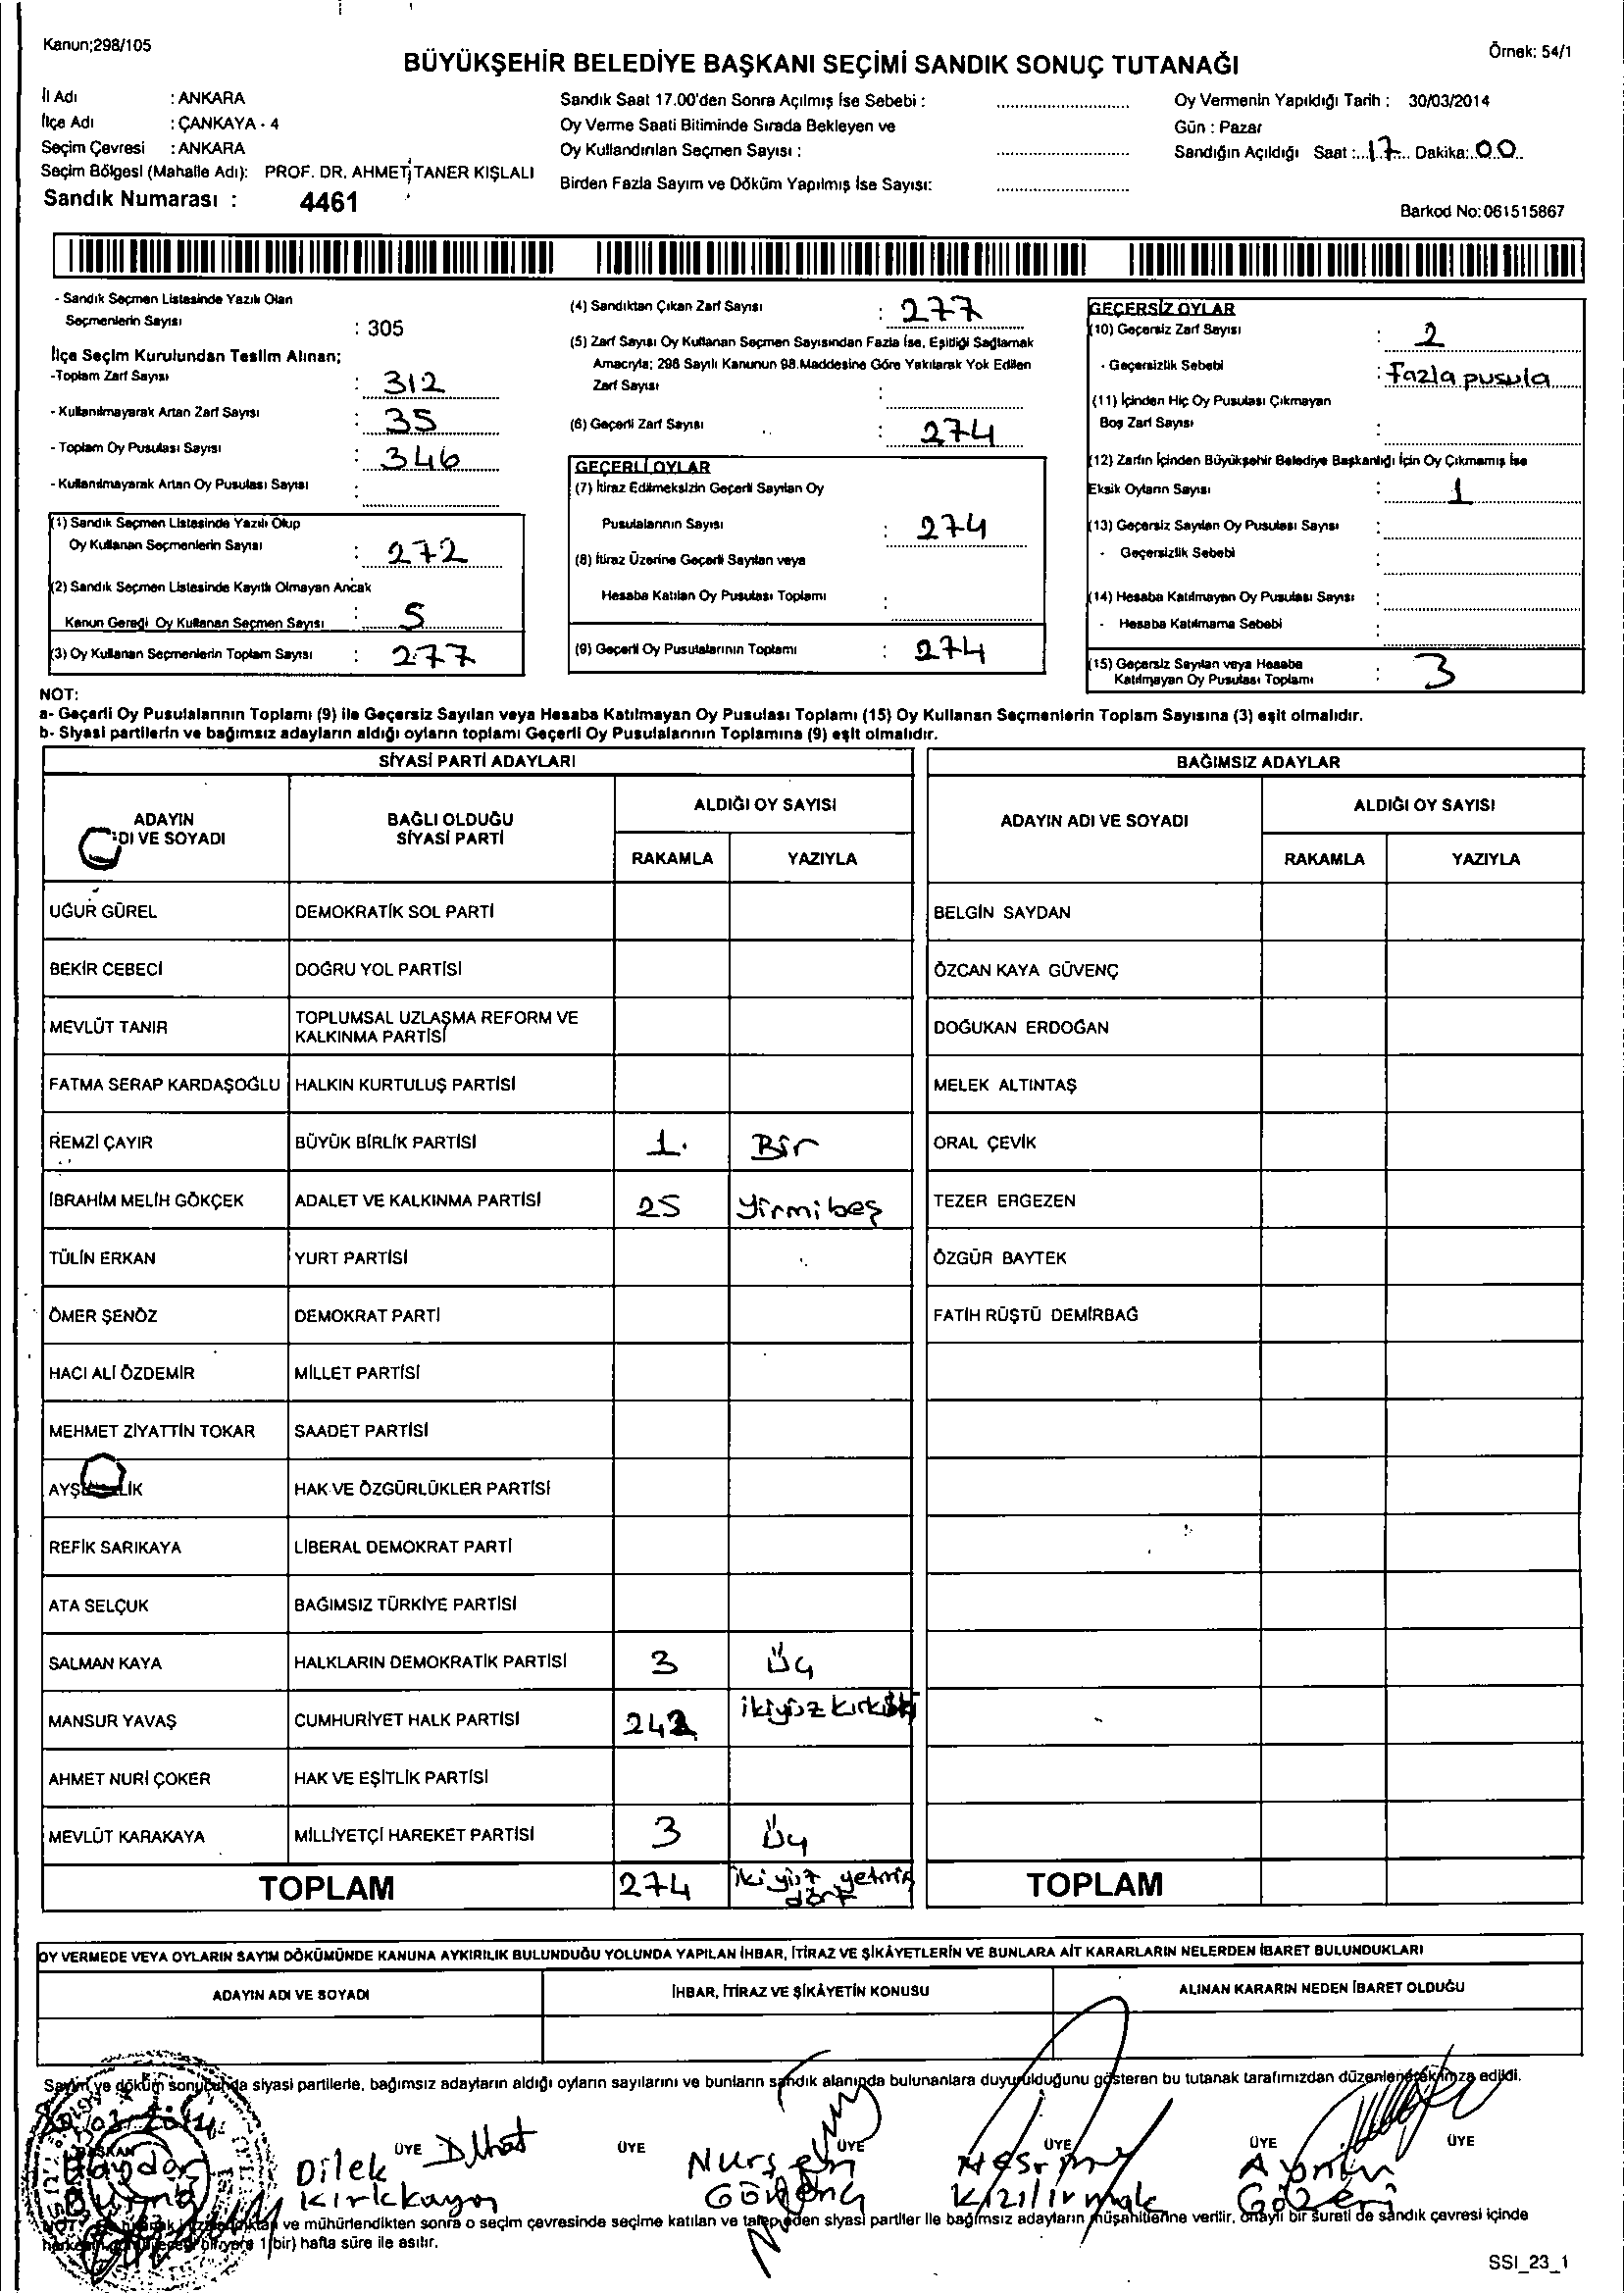 Kanun;298/105
Örnek: 54/1
BÜYÜKŞEHİR BELEDİYE BAŞKANI SEÇİMİ SANDIK SONUÇ TUTANAĞI
İl Adı : ANKARA
İlçe Adı : ÇANKAYA - 4
Seçim Çevresi : ANKARA
Seçim Bölgesi (Mahalle Adı): PROF. DR. AHMET TANER KIŞLALI
Sandık Numarası : 4461
Sandık Saat 17.00'den Sonra Açılmış İse Sebebi :
Oy Verme Saati Bitiminde Sırada Bekleyen ve
Oy Kullandırılan Seçmen Sayısı :
Birden Fazla Sayım ve Döküm Yapılmış İse Sayısı:
Oy Vermenin Yapıldığı Tarih : 30/03/2014
Gün : Pazar
Sandığın Açıldığı Saat : 17 Dakika: 00
Barkod No:061515867
- Sandık Seçmen Listesinde Yazılı Olan
Seçmenlerin Sayısı : 305
İlçe Seçim Kurulundan Teslim Alınan;
-Toplam Zarf Sayısı : 312
- Kullanılmayarak Artan Zarf Sayısı : 35
- Toplam Oy Pusulası Sayısı : 346
- Kullanılmayarak Artan Oy Pusulası Sayısı :
(1) Sandık Seçmen Listesinde Yazılı Olup
Oy Kullanan Seçmenlerin Sayısı : 272
(2) Sandık Seçmen Listesinde Kayıtlı Olmayan Ancak
Kanun Gereği Oy Kullanan Seçmen Sayısı : 5
(3) Oy Kullanan Seçmenlerin Toplam Sayısı : 277
(4) Sandıktan Çıkan Zarf Sayısı : 277
(5) Zarf Sayısı Oy Kullanan Seçmen Sayısından Fazla İse, Eşitliği Sağlamak
Amacıyla; 298 Sayılı Kanunun 98.Maddesine Göre Yakılarak Yok Edilen
Zarf Sayısı :
(6) Geçerli Zarf Sayısı : 274
GEÇERLİ OYLAR
(7) İtiraz Edilmeksizin Geçerli Sayılan Oy
Pusulalarının Sayısı : 274
(8) İtiraz Üzerine Geçerli Sayılan veya
Hesaba Katılan Oy Pusulası Toplamı :
(9) Geçerli Oy Pusulalarının Toplamı : 274
GEÇERSİZ OYLAR
(10) Geçersiz Zarf Sayısı : 2
- Geçersizlik Sebebi : Fazla pusula
(11) İçinden Hiç Oy Pusulası Çıkmayan
Boş Zarf Sayısı :
(12) Zarfın İçinden Büyükşehir Belediye Başkanlığı İçin Oy Çıkmamış İse
Eksik Oyların Sayısı : 1
(13) Geçersiz Sayılan Oy Pusulası Sayısı :
- Geçersizlik Sebebi :
(14) Hesaba Katılmayan Oy Pusulası Sayısı :
- Hesaba Katılmama Sebebi :
(15) Geçersiz Sayılan veya Hesaba
Katılmayan Oy Pusulası Toplamı : 3
NOT:
a- Geçerli Oy Pusulalarının Toplamı (9) ile Geçersiz Sayılan veya Hesaba Katılmayan Oy Pusulası Toplamı (15) Oy Kullanan Seçmenlerin Toplam Sayısına (3) eşit olmalıdır.
b- Siyasi partilerin ve bağımsız adayların aldığı oyların toplamı Geçerli Oy Pusulalarının Toplamına (9) eşit olmalıdır.
SİYASİ PARTİ ADAYLARI
ADAYIN
ADI VE SOYADI
BAĞLI OLDUĞU
SİYASİ PARTİ
ALDIĞI OY SAYISI
RAKAMLA YAZIYLA
UĞUR GÜREL DEMOKRATİK SOL PARTİ
BEKİR CEBECİ DOĞRU YOL PARTİSİ
MEVLÜT TANIR TOPLUMSAL UZLAŞMA REFORM VE
KALKINMA PARTİSİ
FATMA SERAP KARDAŞOĞLU HALKIN KURTULUŞ PARTİSİ
REMZİ ÇAYIR BÜYÜK BİRLİK PARTİSİ 1. Bir
İBRAHİM MELİH GÖKÇEK ADALET VE KALKINMA PARTİSİ 25 Yirmibeş
TÜLİN ERKAN YURT PARTİSİ
ÖMER ŞENÖZ DEMOKRAT PARTİ
HACI ALİ ÖZDEMİR MİLLET PARTİSİ
MEHMET ZİYATTİN TOKAR SAADET PARTİSİ
HAK VE ÖZGÜRLÜKLER PARTİSİ
REFİK SARIKAYA LİBERAL DEMOKRAT PARTİ
ATA SELÇUK BAĞIMSIZ TÜRKİYE PARTİSİ
SALMAN KAYA HALKLARIN DEMOKRATİK PARTİSİ 3 Üç
MANSUR YAVAŞ CUMHURİYET HALK PARTİSİ 242 ikiyüz kırkiki
AHMET NURİ ÇOKER HAK VE EŞİTLİK PARTİSİ
MEVLÜT KARAKAYA MİLLİYETÇİ HAREKET PARTİSİ 3 Üç
TOPLAM 274 iki yüz yetmiş
dört
BAĞIMSIZ ADAYLAR
ADAYIN ADI VE SOYADI
ALDIĞI OY SAYISI
RAKAMLA YAZIYLA
BELGİN SAYDAN
ÖZCAN KAYA GÜVENÇ
DOĞUKAN ERDOĞAN
MELEK ALTINTAŞ
ORAL ÇEVİK
TEZER ERGEZEN
ÖZGÜR BAYTEK
FATİH RÜŞTÜ DEMİRBAĞ
TOPLAM
OY VERMEDE VEYA OYLARIN SAYIM DÖKÜMÜNDE KANUNA AYKIRILIK BULUNDUĞU YOLUNDA YAPILAN İHBAR, İTİRAZ VE ŞİKÂYETLERİN VE BUNLARA AİT KARARLARIN NELERDEN İBARET BULUNDUKLARI
ADAYIN ADI VE SOYADI İHBAR, İTİRAZ VE ŞİKÂYETİN KONUSU ALINAN KARARIN NEDEN İBARET OLDUĞU
Sayım ve döküm sonucunda siyasi partilerle, bağımsız adayların aldığı oyların sayılarını ve bunların sandık alanında bulunanlara duyurulduğunu gösteren bu tutanak tarafımızdan düzenlenerek imza edildi.
BAŞKAN ÜYE ÜYE ÜYE ÜYE ÜYE ÜYE
Dilek
Kırkkayon
Nurşen
Nesrin
Kızılırmak
ve mühürlendikten sonra o seçim çevresinde seçime katılan ve talep eden siyasi partiler ile bağımsız adayların müşahitlerine verilir, onaylı bir sureti de sandık çevresi içinde
1(bir) hafta süre ile asılır.
SSI_23_1